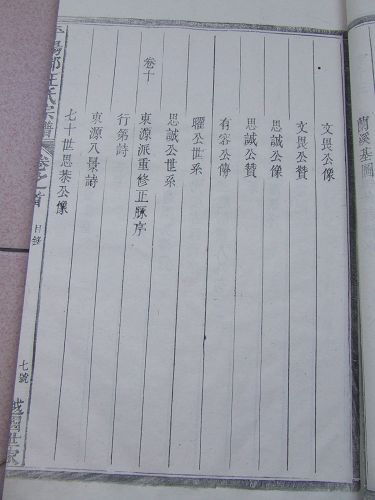 蘭溪基圖
文畏公像
文畏公贊
思誠公像
思誠公贊
有容公傳
公世系
思誠公世系
卷十
東源派重修正脉序
行第詩
東源八景詩
七十世思恭公像
陽郡汪氏宗譜
卷之首
目錄
七號
越國世家